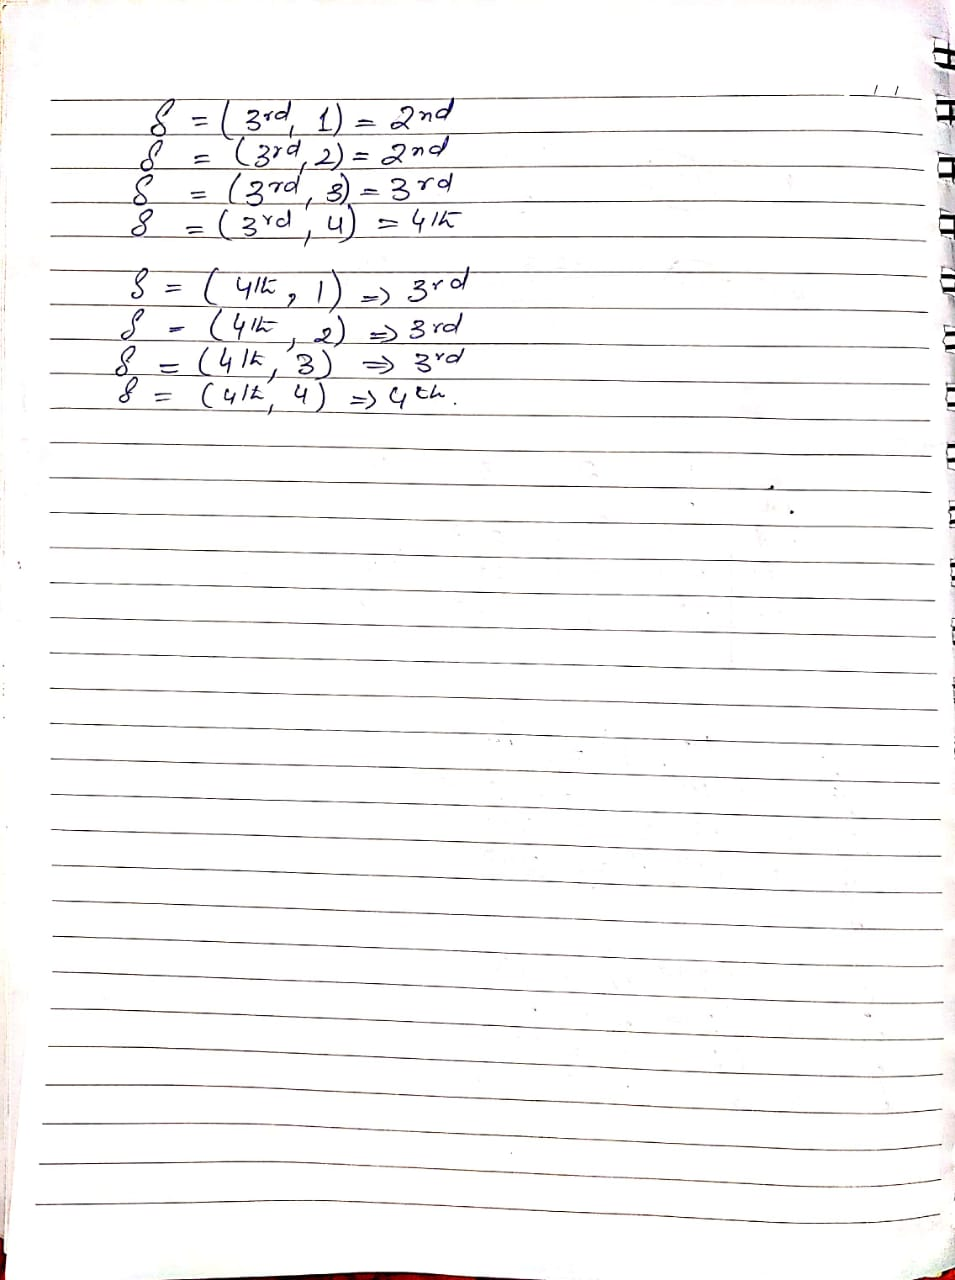 δ = (3rd, 1) = 2nd
δ = (3rd, 2) = 2nd
δ = (3rd, 3) = 3rd
δ = (3rd, 4) = 4th
δ = (4th, 1) ⇒ 3rd
δ = (4th, 2) ⇒ 3rd
δ = (4th, 3) ⇒ 3rd
δ = (4th, 4) ⇒ 4th.